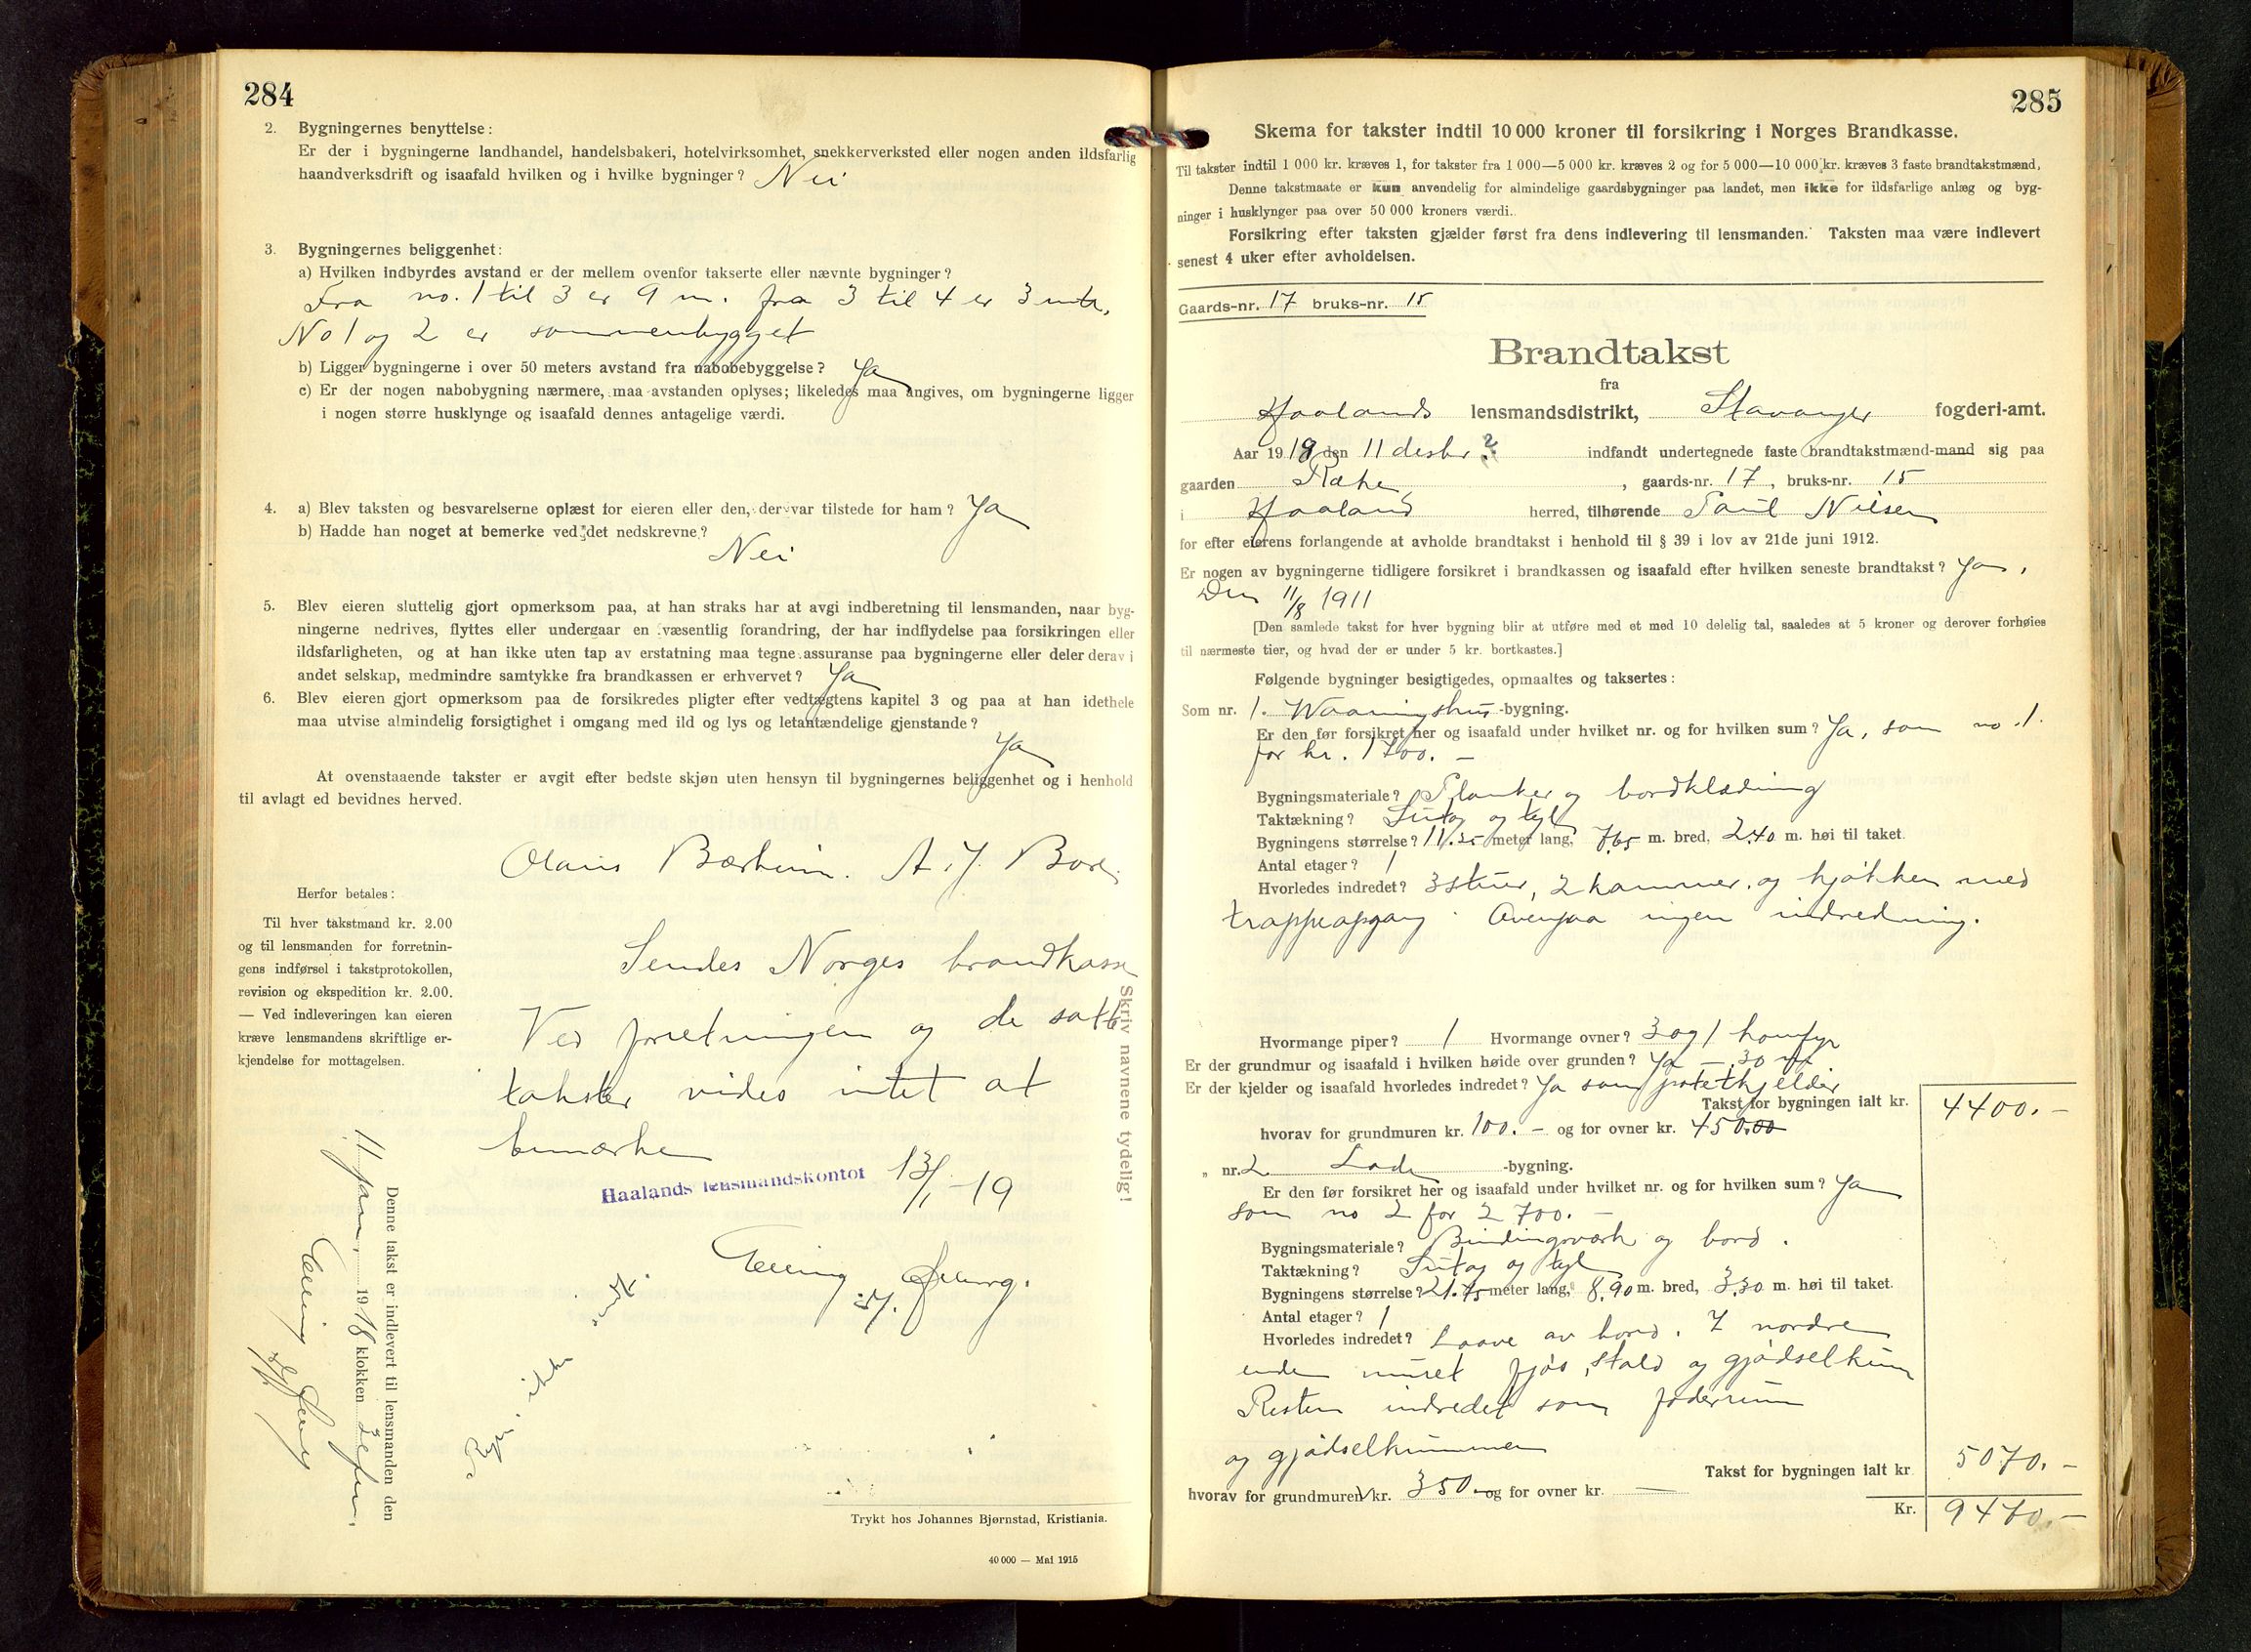 284
2. Bygningernes benyttelse:
Er der i bygningerne landhandel, handelsbakeri, hotelvirksomhet, snekkerverksted eller nogen anden ildsfarlig
haandverksdrift og isaafald hvilken og i hvilke bygninger? Nei
3. Bygningernes beliggenhet:
a) Hvilken indbyrdes avstand er der mellem ovenfor takserte eller nævnte bygninger?
Fra no. 1 til 3 er 9 m. fra 3 til 4 er 3 mtr.
No 1 og 2 er sammenbygget
b) Ligger bygningerne i over 50 meters avstand fra nabobebyggelse? Ja
c) Er der nogen nabobygning nærmere, maa avstanden oplyses; likeledes maa angives, om bygningerne ligger
i nogen større husklynge og isaafald dennes antagelige værdi.
4. a) Blev taksten og besvarelserne oplæst for eieren eller den, der var tilstede for ham? Ja
b) Hadde han noget at bemerke ved det nedskrevne?
Nei
5. Blev eieren sluttelig gjort opmerksom paa, at han straks har at avgi indberetning til lensmanden, naar byg-
ningerne nedrives, flyttes eller undergaar en væsentlig forandring, der har indflydelse paa forsikringen eller
ildsfarligheten, og at han ikke uten tap av erstatning maa tegne assuranse paa bygningerne eller deler derav i
andet selskap, medmindre samtykke fra brandkassen er erhvervet? Ja
6. Blev eieren gjort opmerksom paa de forsikredes pligter efter vedtægtens kapitel 3 og paa at han idethele
maa utvise almindelig forsigtighet i omgang med ild og lys og letantændelige gjenstande?
Ja
At ovenstaaende takster er avgit efter bedste skjøn uten hensyn til bygningernes beliggenhet og i henhold
til avlagt ed bevidnes herved.
Olaus Bærheim. A. J. Bore.
Herfor betales:
Til hver takstmand kr. 2.00
og til lensmanden for forretnin-
gens indførsel i takstprotokollen,
revision og ekspedition kr. 2.00.
— Ved indleveringen kan eieren
kræve lensmandens skriftlige er-
kjendelse for mottagelsen.
Sendes Norges brandkasse
Ved forretningen og de satte
takster vides intet at
bemærke
Haalands lensmandskontor 13/1-19
Elling
Skriv navnene tydelig!
ikke sendt.
Denne takst er indlevert til lensmanden den
11 jan. 1918 klokken
Elling
Trykt hos Johannes Bjørnstad, Kristiania.
40 000 — Mai 1915
285
Skema for takster indtil 10 000 kroner til forsikring i Norges Brandkasse.
Til takster indtil 1 000 kr. kræves 1, for takster fra 1 000—5 000 kr. kræves 2 og for 5 000—10 000 kr. kræves 3 faste brandtakstmænd.
Denne takstmaate er kun anvendelig for almindelige gaardsbygninger paa landet, men ikke for ildsfarlige anlæg og byg-
ninger i husklynger paa over 50 000 kroners værdi.
Forsikring efter taksten gjælder først fra dens indlevering til lensmanden. Taksten maa være indlevert
senest 4 uker efter avholdelsen.
Gaards-nr. 17 bruks-nr. 15
Brandtakst
fra
Haalands lensmandsdistrikt, Stavanger fogderi-amt.
Aar 1918 den 11 desbr ? indfandt undertegnede faste brandtakstmænd-mand sig paa
gaarden Ræke, gaards-nr. 17, bruks-nr. 15
i Haaland herred, tilhørende Paul Nilsen
for efter eierens forlangende at avholde brandtakst i henhold til § 39 i lov av 21de juni 1912.
Er nogen av bygningerne tidligere forsikret i brandkassen og isaafald efter hvilken seneste brandtakst? Ja,
Den 11/8 1911
[Den samlede takst for hver bygning blir at utføre med et med 10 delelig tal, saaledes at 5 kroner og derover forhøies
til nærmeste tier, og hvad der er under 5 kr. bortkastes.]
Følgende bygninger besigtigedes, opmaaltes og taksertes:
Som nr. 1. Waaningshus-bygning.
Er den før forsikret her og isaafald under hvilket nr. og for hvilken sum? Ja, som no. 1.
for kr. 1700. —
Bygningsmateriale? Planker og bordklædning
Taktækning? Sutag og tegl
Bygningens størrelse? 11.25 meter lang, 7.65 m. bred, 2.40 m. høi til taket.
Antal etager? 1
Hvorledes indredet? 3 stuer, 2 kammer, og kjøkken med
trappeopgang. Ovenpaa ingen indredning.
Hvormange piper? 1 Hvormange ovner? 3 og 1 komfyr
Er der grundmur og isaafald i hvilken høide over grunden? Ja — 30 cm
Er der kjelder og isaafald hvorledes indredet? Ja som potetkjelder
Takst for bygningen ialt kr. 4400. —
hvorav for grundmuren kr. 100. — og for ovner kr. 450.00
„ nr. 2 Lade -bygning.
Er den før forsikret her og isaafald under hvilket nr. og for hvilken sum? Ja
som no 2 for 2700. —
Bygningsmateriale? Bindingsværk og bord.
Taktækning? Sutag og tegl
Bygningens størrelse? 21.75 meter lang, 8.90 m. bred, 3.30 m. høi til taket.
Antal etager? 1
Hvorledes indredet? Laave av bord. I nordre
ende muret fjøs, stald og gjødselkum
Resten indredet som foderrum
og gjødselkummen
Takst for bygningen ialt kr 5070. —
hvorav for grundmuren kr. 350 — og for ovner kr. —
Kr. 9470. —